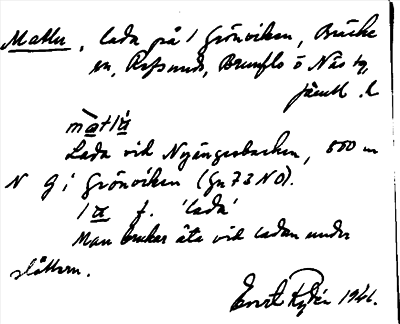 Matlu, lada på 1 Grönviken, Bräcke
sn, Refsunds, Brunflo o Näs tg,
Jämtl. l
matlá
Lada vid Nyängesbacken, 800 m
N g i Grönviken (Gn 73 NO).
la f. 'lada'
Man brukar äta vid ladan under
slåttern.
Evert Rydén 1941.